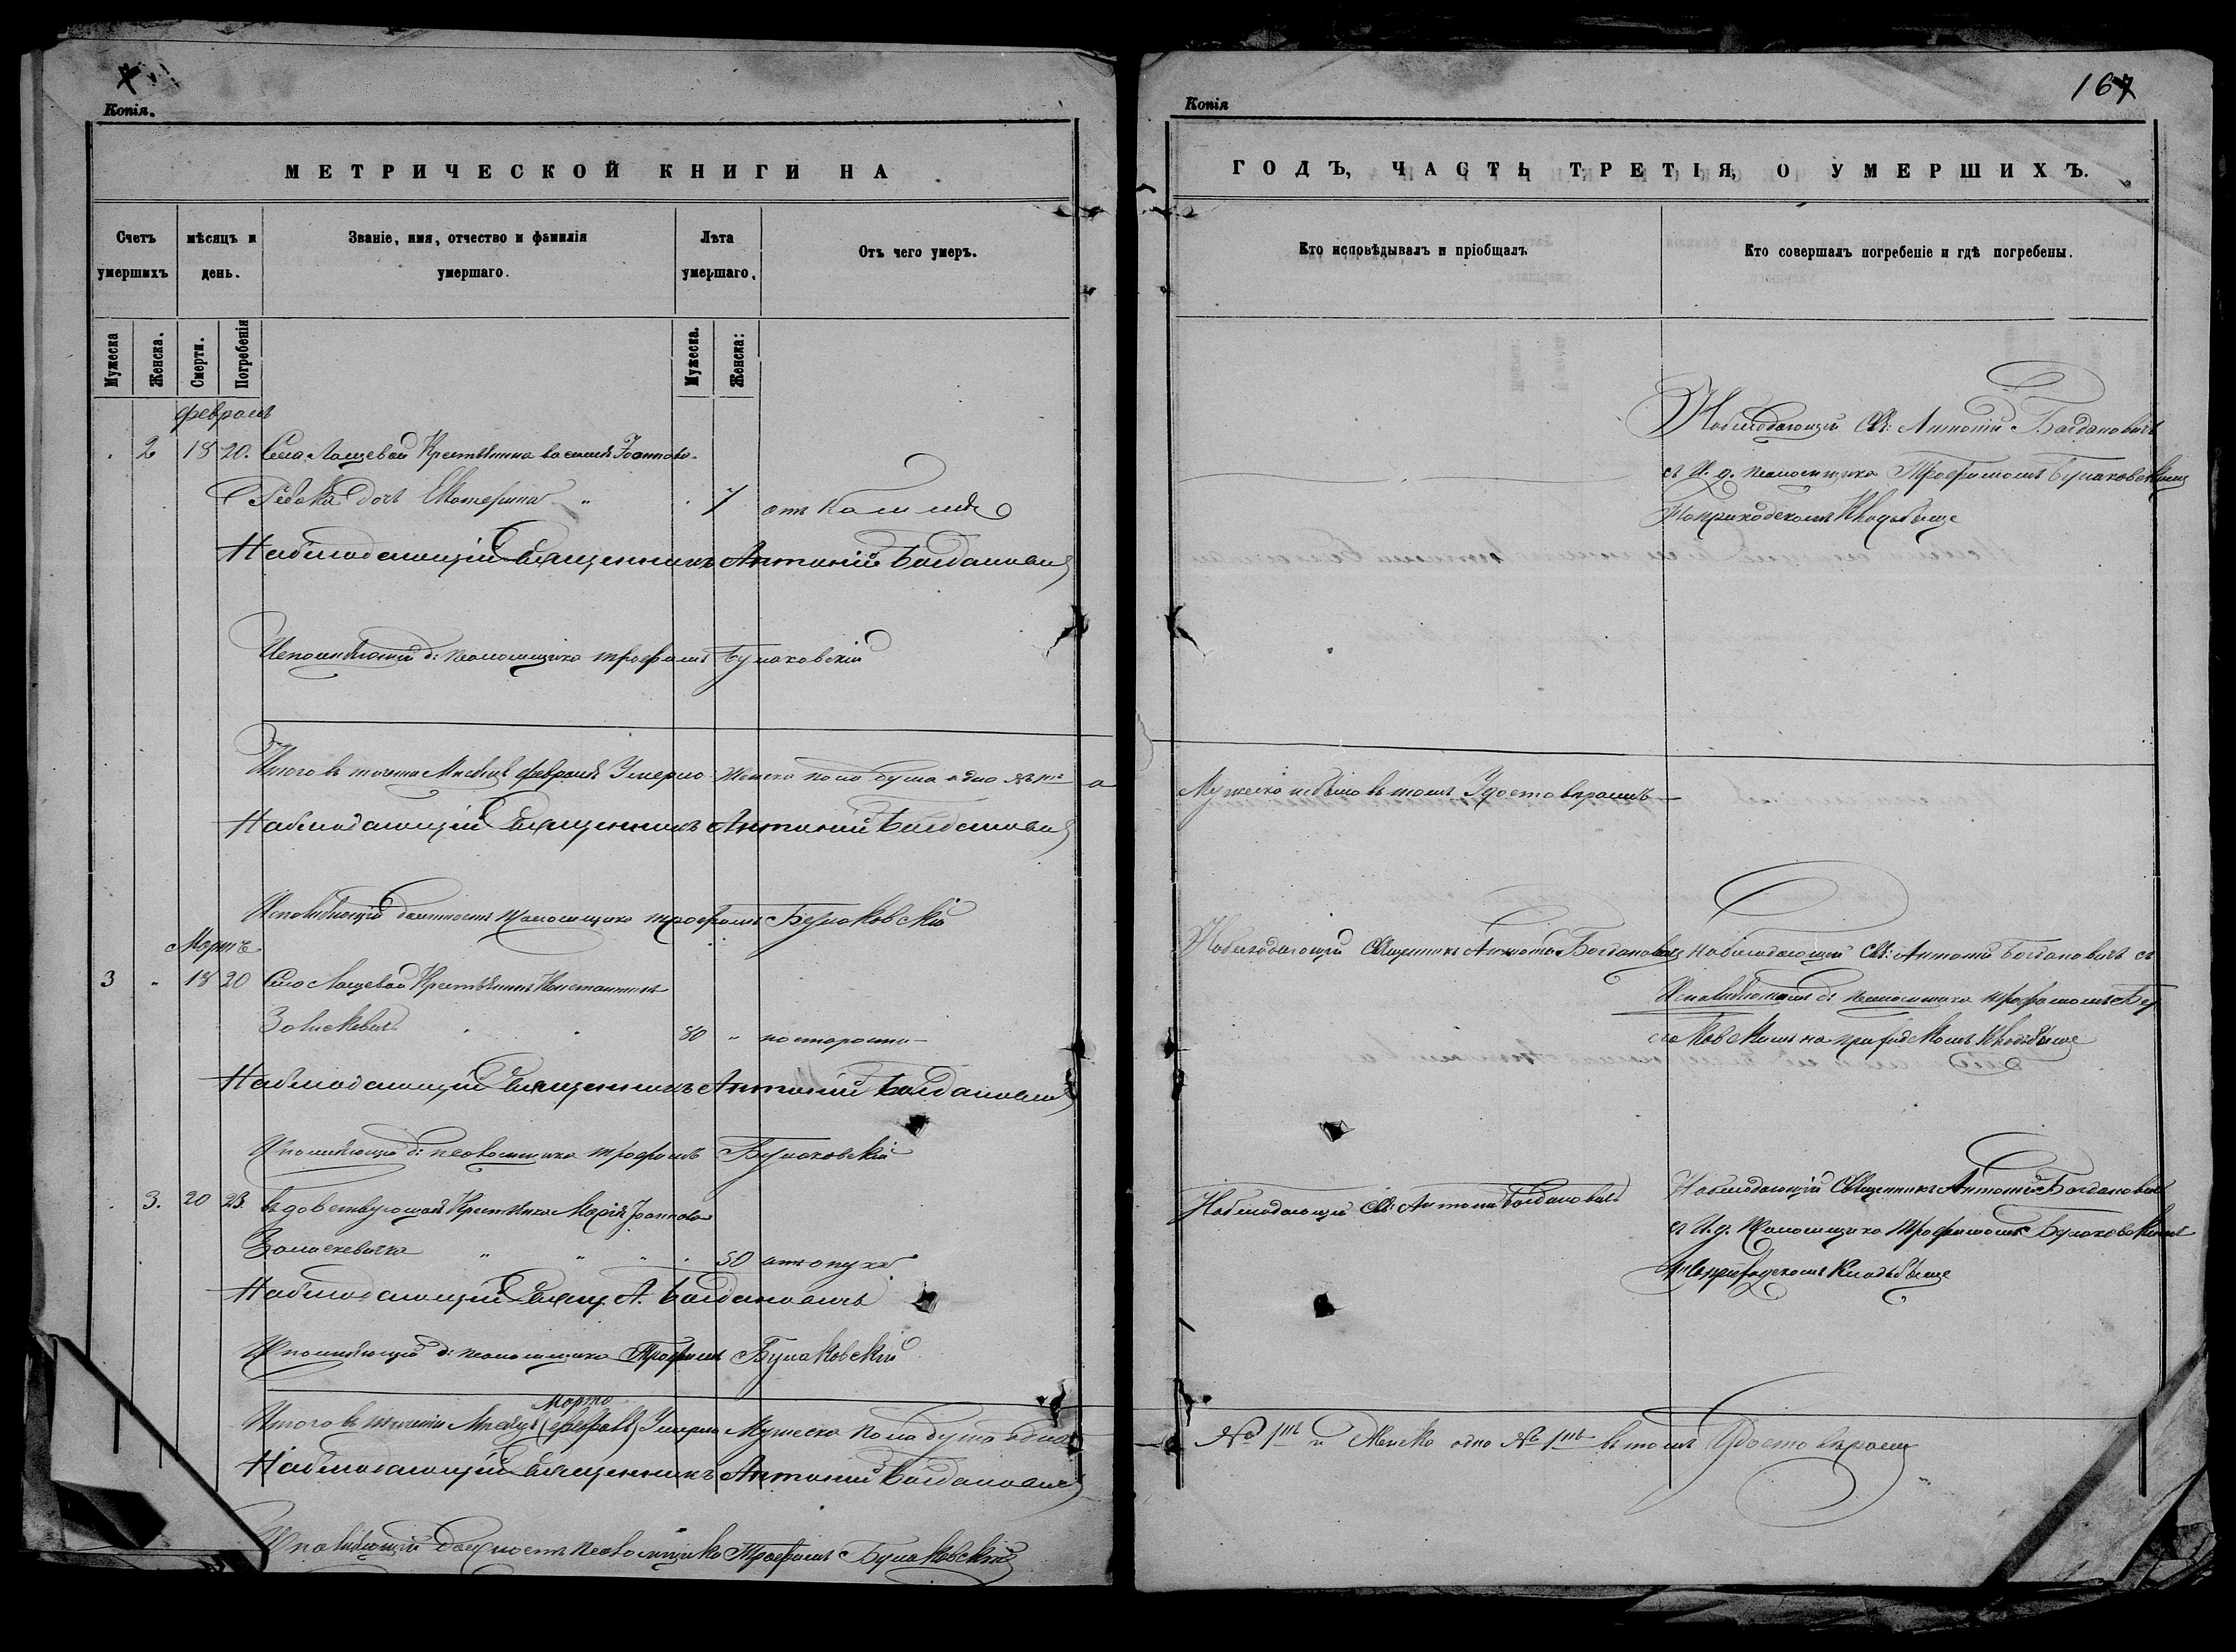 Копія.
МЕТРИЧЕСКОЙ КНИГИ НА
Счетъ умершихъ
мѣсяцъ и день.
Званіе, имя, отчество и фамилія умершаго.
Лѣта умершаго.
Отъ чего умеръ.
Мужеска
Женска.
Смерти.
Погребенія
Мужеска.
Женска:
февраль
2 18 20. Села Лащевой Крестьянина Іоаннова
дочь Екатерина 7 отъ Кашля
Наблюдающій Священникъ Антоній Богдановичъ
д: псаломщика Трофимъ Булаковскій
Итого въ Мѣсяцѣ февралѣ Умерло Женска пола душа одна № 1мъ
Наблюдающій Священникъ Антоній Богдановичъ
должность псаломщика Трофимъ Булаковскій
Мартъ
3 18 20 Села Лащевой Крестьянинъ Константинъ
80 по старости
Наблюдающій Священникъ Антоній Богдановичъ
д: псаломщика Трофимъ Булаковскій
3. 20 23. вдовствующая Крестьянка Марія Іоаннова
50 отъ опухи
Наблюдающій Свящ. А. Богдановичъ
д: псаломщика Трофимъ Булаковскій
Марто
Итого въ теченіи Мѣсяцѣ (февралѣ) Умерло Мужеска пола душа одна
Наблюдающій Священникъ Антоній Богдановичъ
должность псаломщика Трофимъ Булаковскій
Копія
167
ГОДЪ, ЧАСТЬ ТРЕТІЯ, О УМЕРШИХЪ.
Кто исповѣдывалъ и пріобщалъ
Кто совершалъ погребеніе и гдѣ погребены.
Наблюдающій Св: Антоній Богдановичъ
съ И. д. псаломщика Трофимомъ Булаковскимъ
На приходскомъ Кладбыще
Мужеска небыло въ томъ Удостовѣряемъ
Наблюдающій Священникъ Антоній Богдановичъ
Наблюдающій Св: Антоній Богдановичъ съ
д: псаломщика Трофимомъ Бу
лаковскимъ на приходскомъ Кладбыще
Наблюдающій Св: Антоній Богдановичъ
Наблюдающій Священникъ Антоній Богдановичъ
съ И. д. псаломщика Трофимомъ Булаковскимъ
На приходскомъ Кладбыще
№ 1мъ и Женска одна № 1мъ въ томъ Удостовѣряемъ